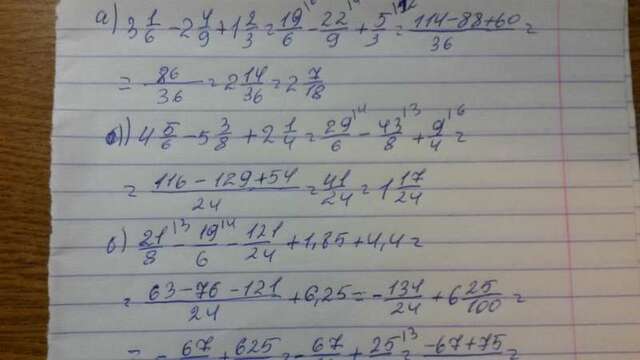 а) 3 1/6 - 2 4/9 + 1 2/3 = 19/6 - 22/9 + 5/3 = (114-88+60)/36 =
= 86/36 = 2 14/36 = 2 7/18
б) 4 5/6 - 5 3/8 + 2 1/4 = 29/6 \4 - 43/8 \3 + 9/4 \6 =
= (116-129+54)/24 = 41/24 = 1 17/24
в) 21/8 \3 - 19/6 \4 - 121/24 + 1,85 + 4,4 =
= (63-76-121)/24 + 6,25 = - 134/24 + 6 25/100 =
= - 67/ + 625/ = - 67/ + 25/ \3 = -67+75/ =